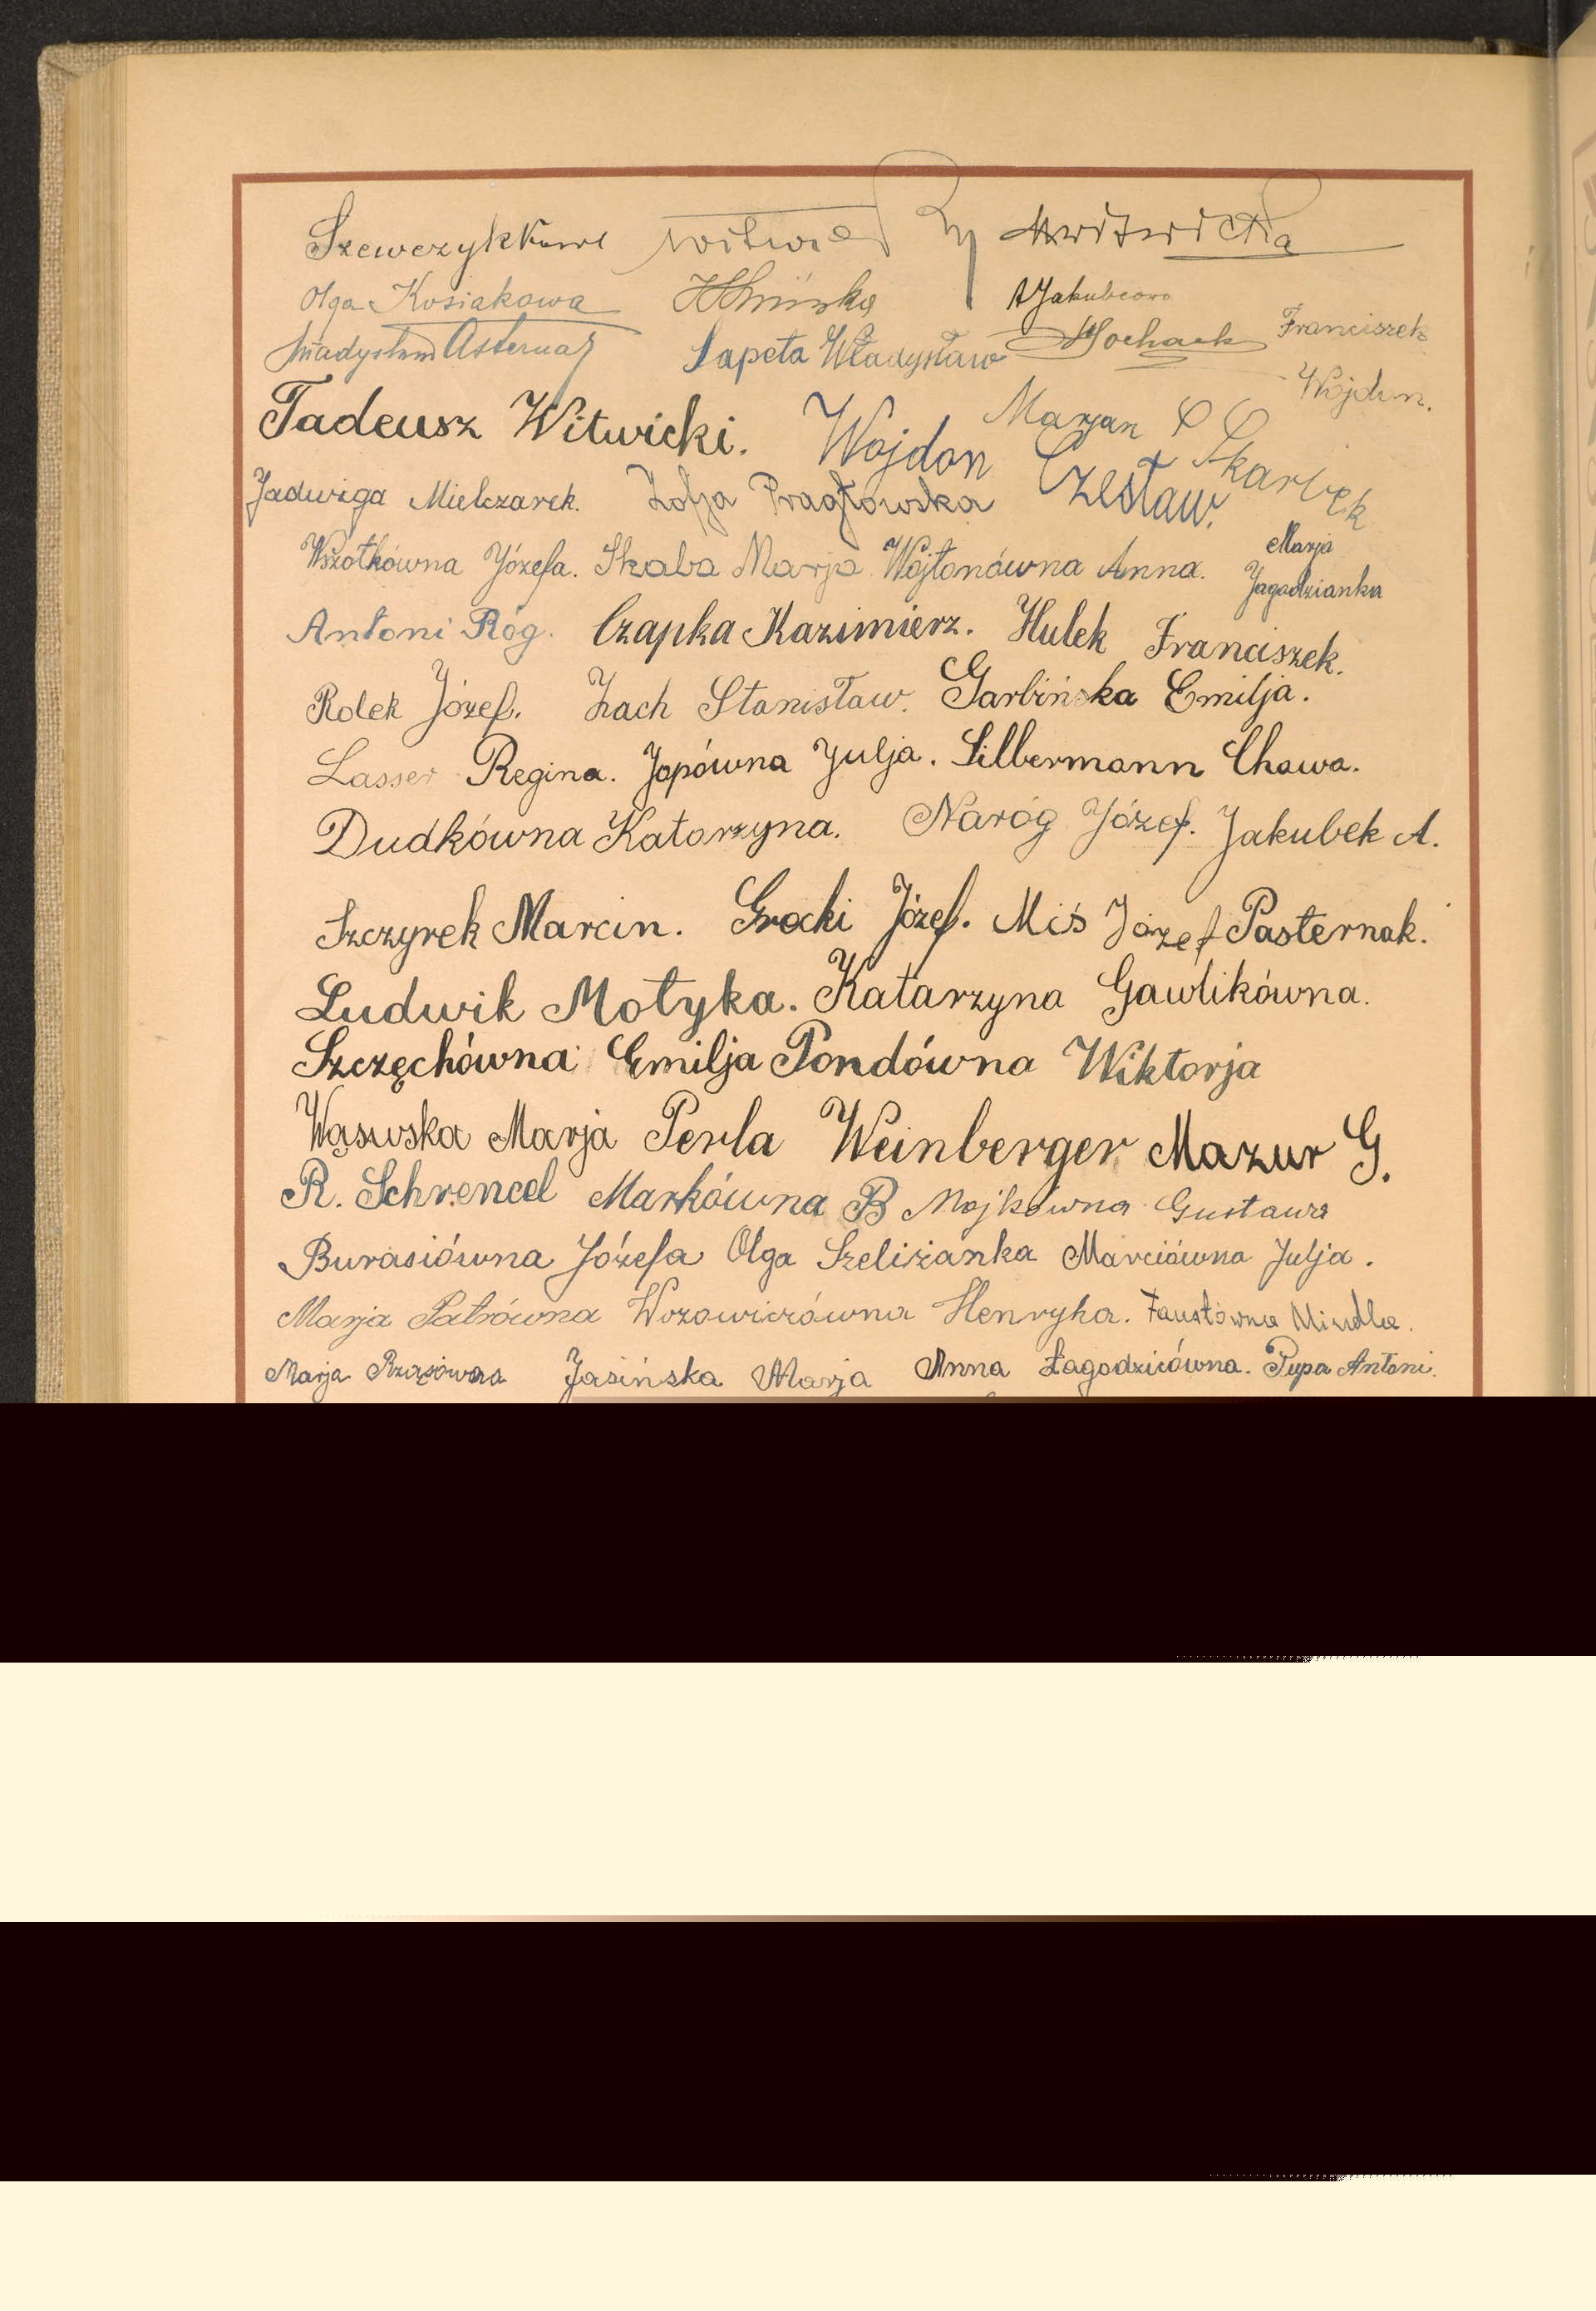 Witwicka
Olga Kosiakowa AJakubcowa
Władysław Lapeta Władysław Franciszek
Wojdon.
Tadeusz Witwicki. Wojdon Czesław. Marjan Skarbek
Jadwiga Mielczarek. Zofja
Wszołkówna Józefa. Skaba Marja Wojtonówna Anna. Marja
Jagodzianka
Antoni Róg. Czapka Kazimierz. Hulek Franciszek.
Rolek Józef. Zach Stanisław. Garbińska Emilja.
Lasser Regina. Jopówna Julja. Silbermann Chawa.
Dudkówna Katarzyna. Naróg Józef. Jakubek A.
Szczyrek Marcin. Grocki Józef. Miś Józef Pasternak.
Ludwik Motyka. Katarzyna Gawlikówna.
Szczęchówna Emilja Pondówna Wiktorja
Wąsowska Marja Perla Weinberger Mazur G.
R. Schrencel Markówna B Mojkówna Gustawa
Burasiówna Józefa Olga Szeliżanka Marciówna Julja.
Marja Patrówna Wozowiczówna Henryka. Faustówna Mindla.
Marja Rzasówna Jasińska Marja Anna Łagodzicówna. Pupa Antoni.